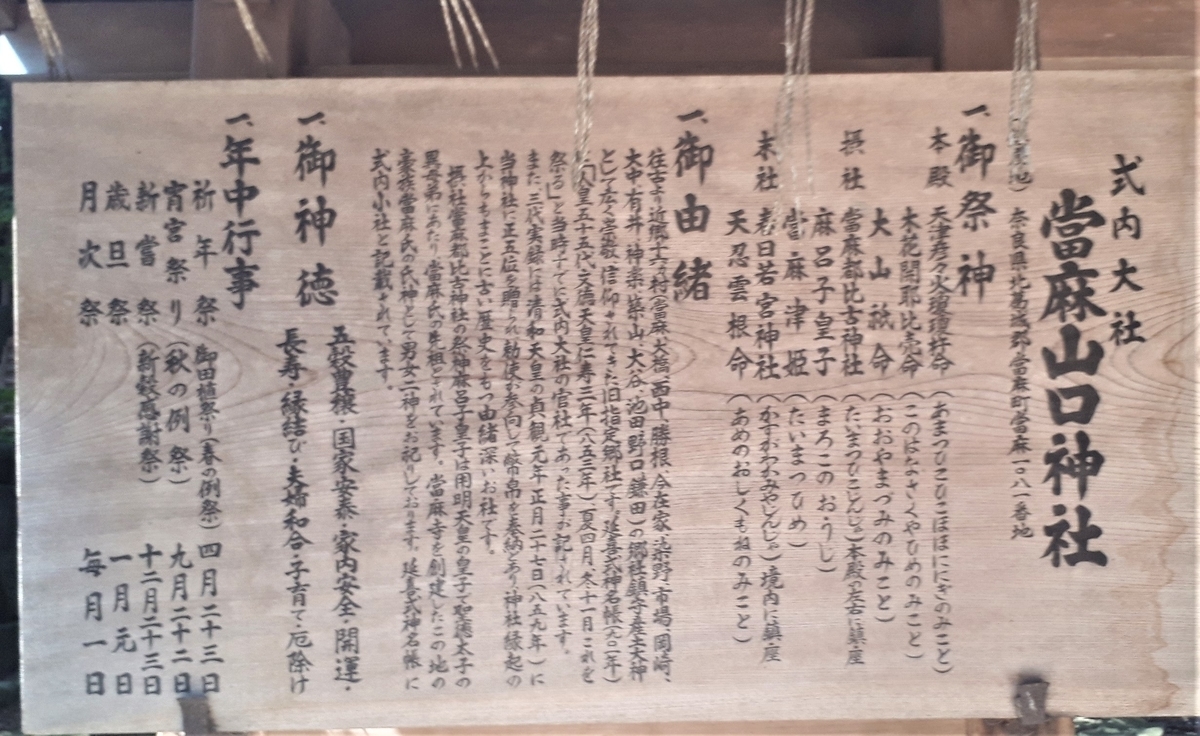 式内大社
當麻山口神社
奈良県北葛城郡當麻町當麻一〇八一番地
一、御祭神
本殿 天津彦々火瓊瓊杵命（あまつひこひこほほににぎのみこと）
木花開耶比売命（このはなさくやひめのみこと）
大山祇命（おおやまづみのみこと）
摂社 當麻都比古神社（たいまつひこじんじゃ）本殿の左右に鎮座
麻呂子皇子（まろこのおうじ）
當麻津姫（たいまつひめ）
末社 春日若宮神社（かすがわかみやじんじゃ）境内に鎮座
天忍雲根命（あめのおしくもねのみこと）
一、御由緒
往古より近郷十六ヶ村（當麻、大橋、西中、勝根、今在家、染野、市場、岡崎、
大中、有井、神楽、築山、大谷、池田、野口、鎌田）の郷社鎮守産土大神
として広く崇敬、信仰されてきた旧指定郷社です。延喜式神名帳（九〇一年）
「人皇五十五代文徳天皇仁寿三年（八五三年）夏四月、冬十一月これを
祭る」と当時すでに式内大社の官社であった事が記されています。
また、三代実録には清和天皇の貞観元年正月二十七日（八五九年）に
当神社に正五位を贈られ勅使が参向して幣帛を奉納とあり神社縁起の
上からもまことに古い歴史をもつ由緒深いお社です。
摂社當麻都比古神社の祭神麻呂子皇子は用明天皇の皇子で聖徳太子の
異母弟にあたり、當麻氏の先祖とされています。當麻寺を創建したこの地の
豪族當麻氏の氏神として男女二神をお祀りしております。延喜式神名帳に
式内小社と記載されています。
一、御神徳
五穀豊穣・国家安泰・家内安全・開運・
長寿・縁結び・夫婦和合・子育て・厄除け
一、年中行事
祈年祭 御田植祭り（春の例祭）四月二十三日
宵宮祭り（秋の例祭）九月二十二日
新嘗祭（新穀感謝祭）十二月二十三日
歳旦祭 一月元日
月次祭 毎月一日